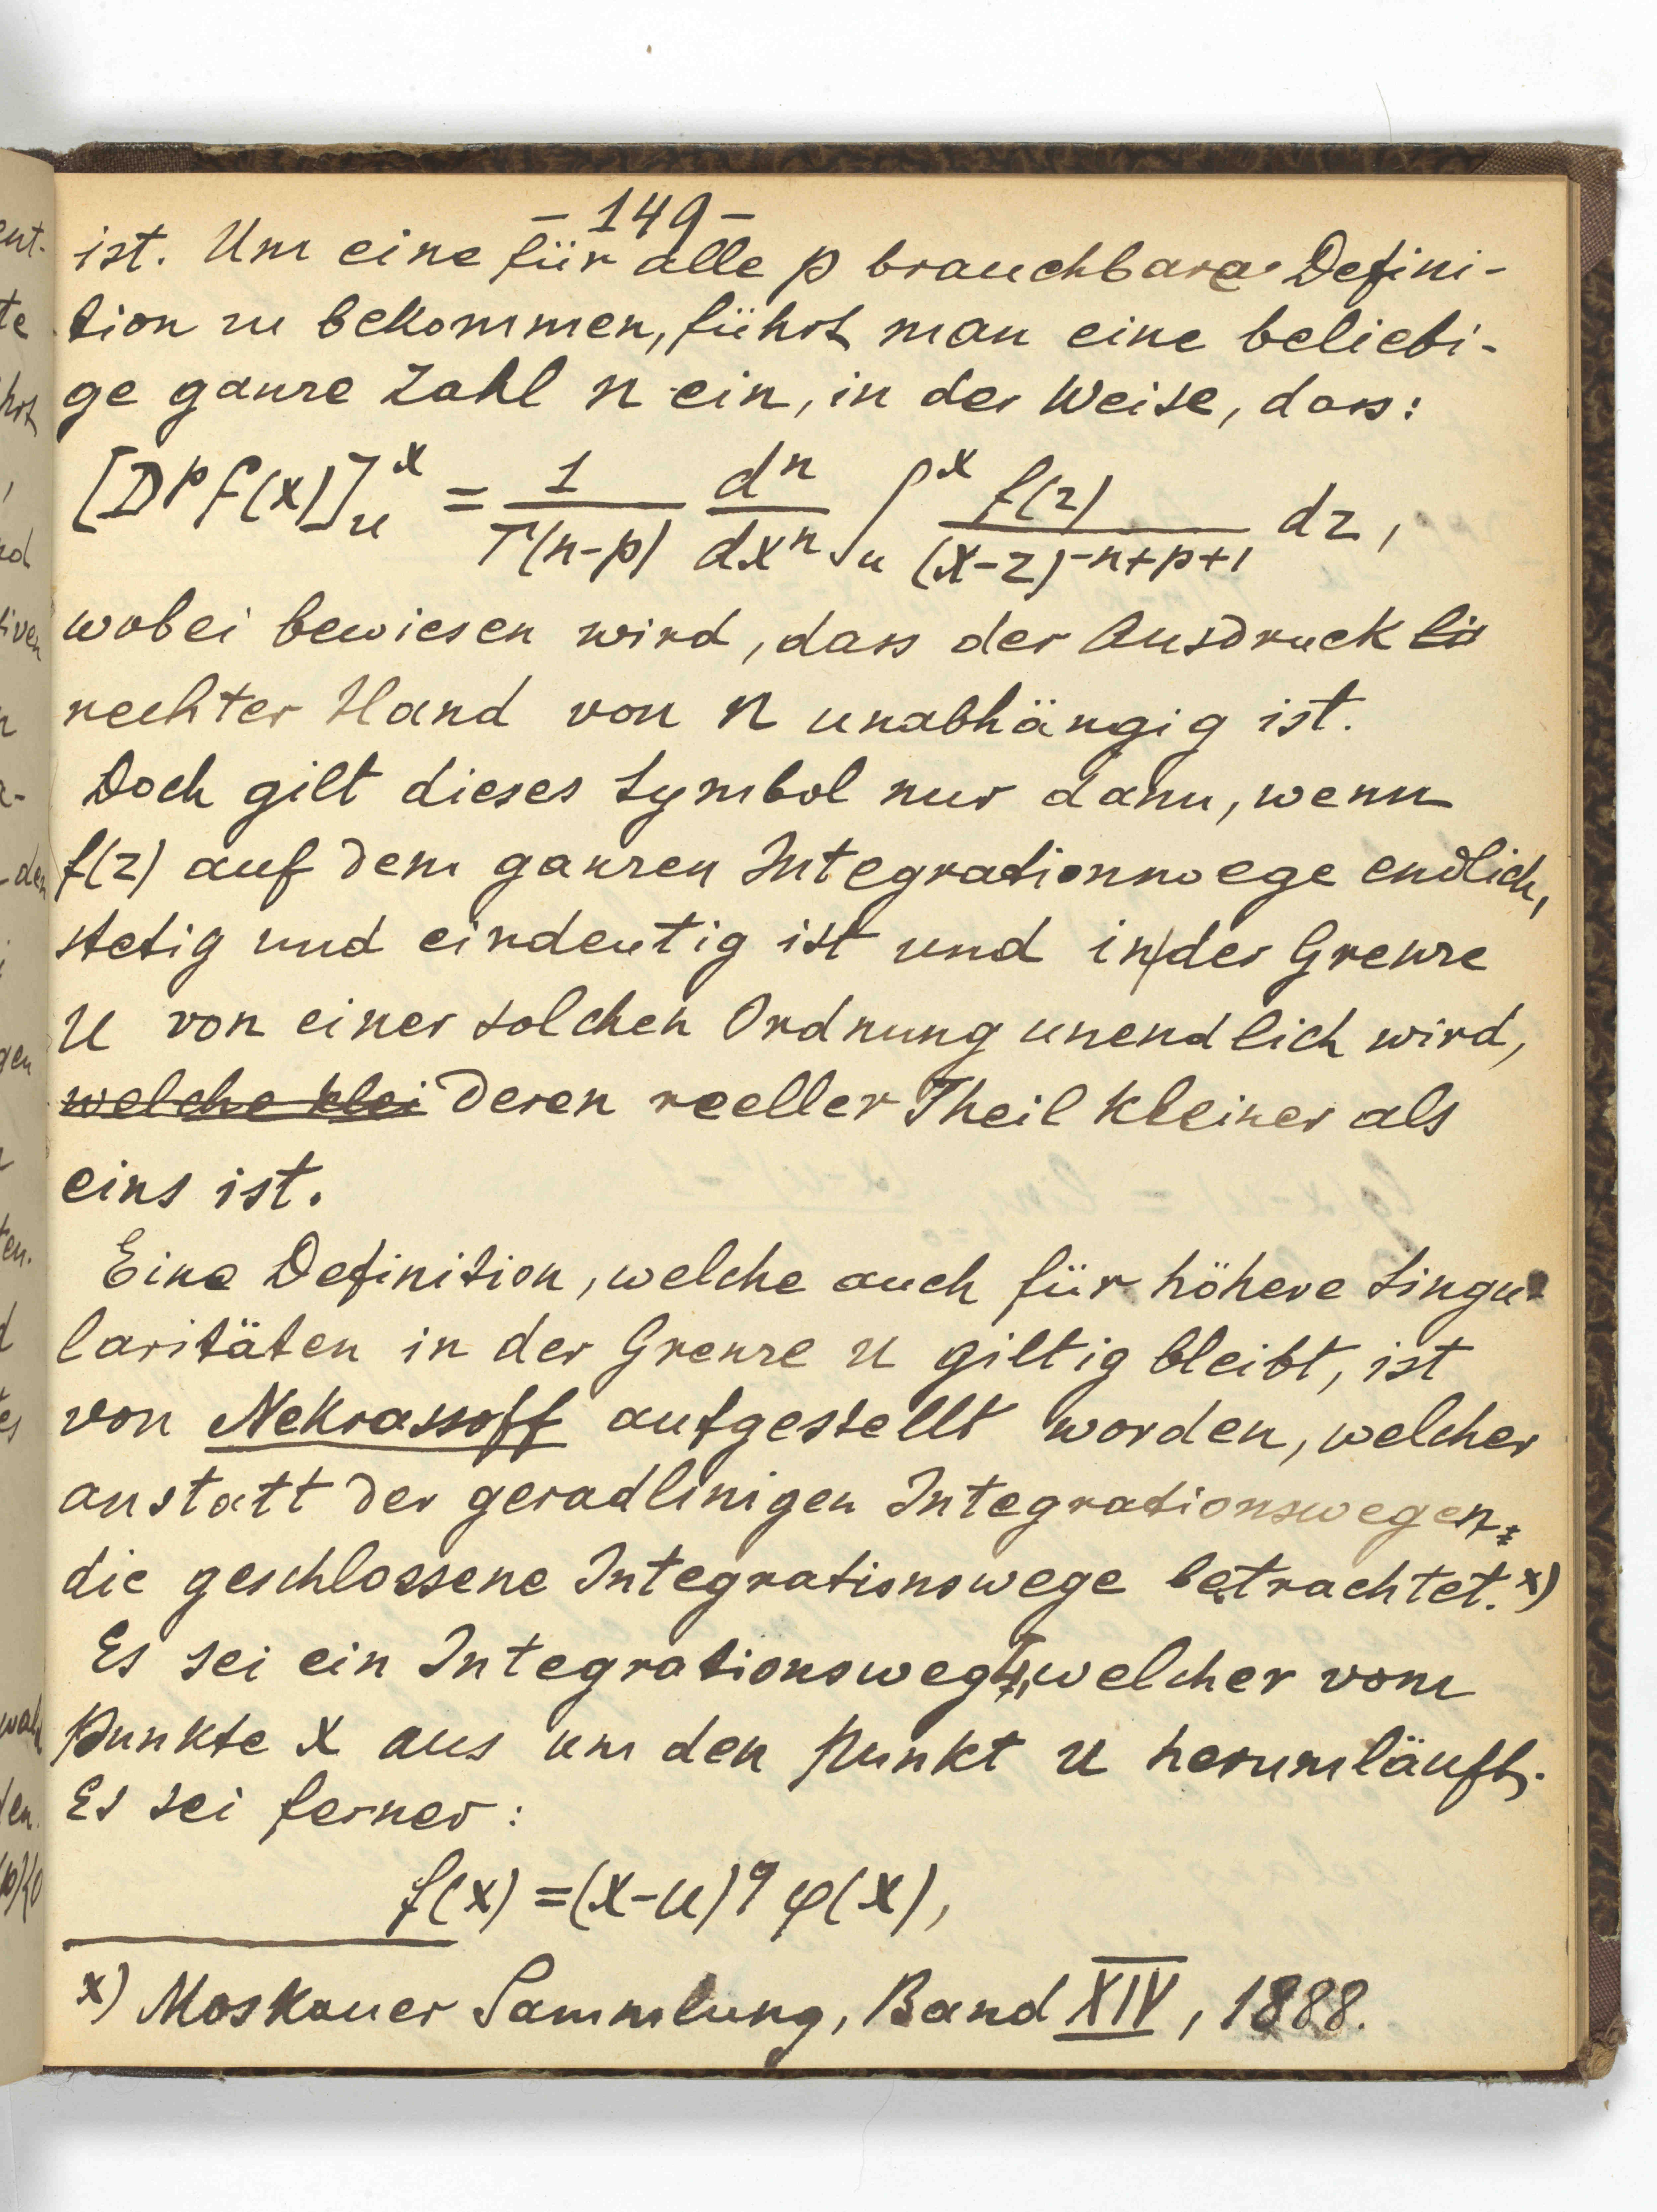 - 149 -
ist. Um eine für alle p brauchbare Defini-
tion zu bekommen, führt man eine beliebi-
ge ganze Zahl n ein, in der Weise, dass:
[D^p f(x)]_u^x = 1/Γ(n-p) d^n/dx^n ∫_u^x f(z)/(x-z)^{-n+p+1} dz,
wobei bewiesen wird, dass der Ausdruck li
rechter Hand von n unabhängig ist.
Doch gilt dieses Symbol nur dann, wenn
f(z) auf dem ganzen Integrationswege endlich,
stetig und eindeutig ist und in der Grenze
u von einer solchen Ordnung unendlich wird,
welche klei deren reeller Theil kleiner als
eins ist.
Eine Definition, welche auch für höhere Singu-
laritäten in der Grenze u giltig bleibt, ist
von Nekrassoff aufgestellt worden, welcher
anstatt der geradlinigen Integrationswegen
die geschlossene Integrationswege betrachtet. x)
Es sei ein Integrationsweg, welcher vom
Punkte x aus um den Punkt u herumläuft.
Es sei ferner:
f(x) = (x-u)^q φ(x),
x) Moskauer Sammlung, Band XIV, 1888.